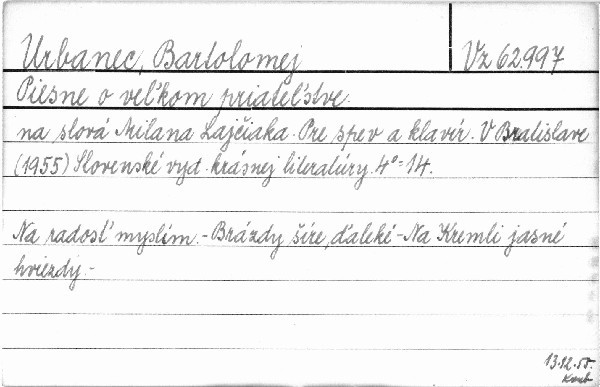 Urbanec, Bartolomej
Vz 62.997
Piesne o veľkom priateľstve.
na slová Milana Lajčiaka. Pre spev a klavír. V Bratislave
(1955) Slovenské vyd. krásnej literatúry. 4°-14.
Na radosť myslím.-Brázdy šíre, ďaleké-Na Kremli jasné
hviezdy.-
13.12.55.